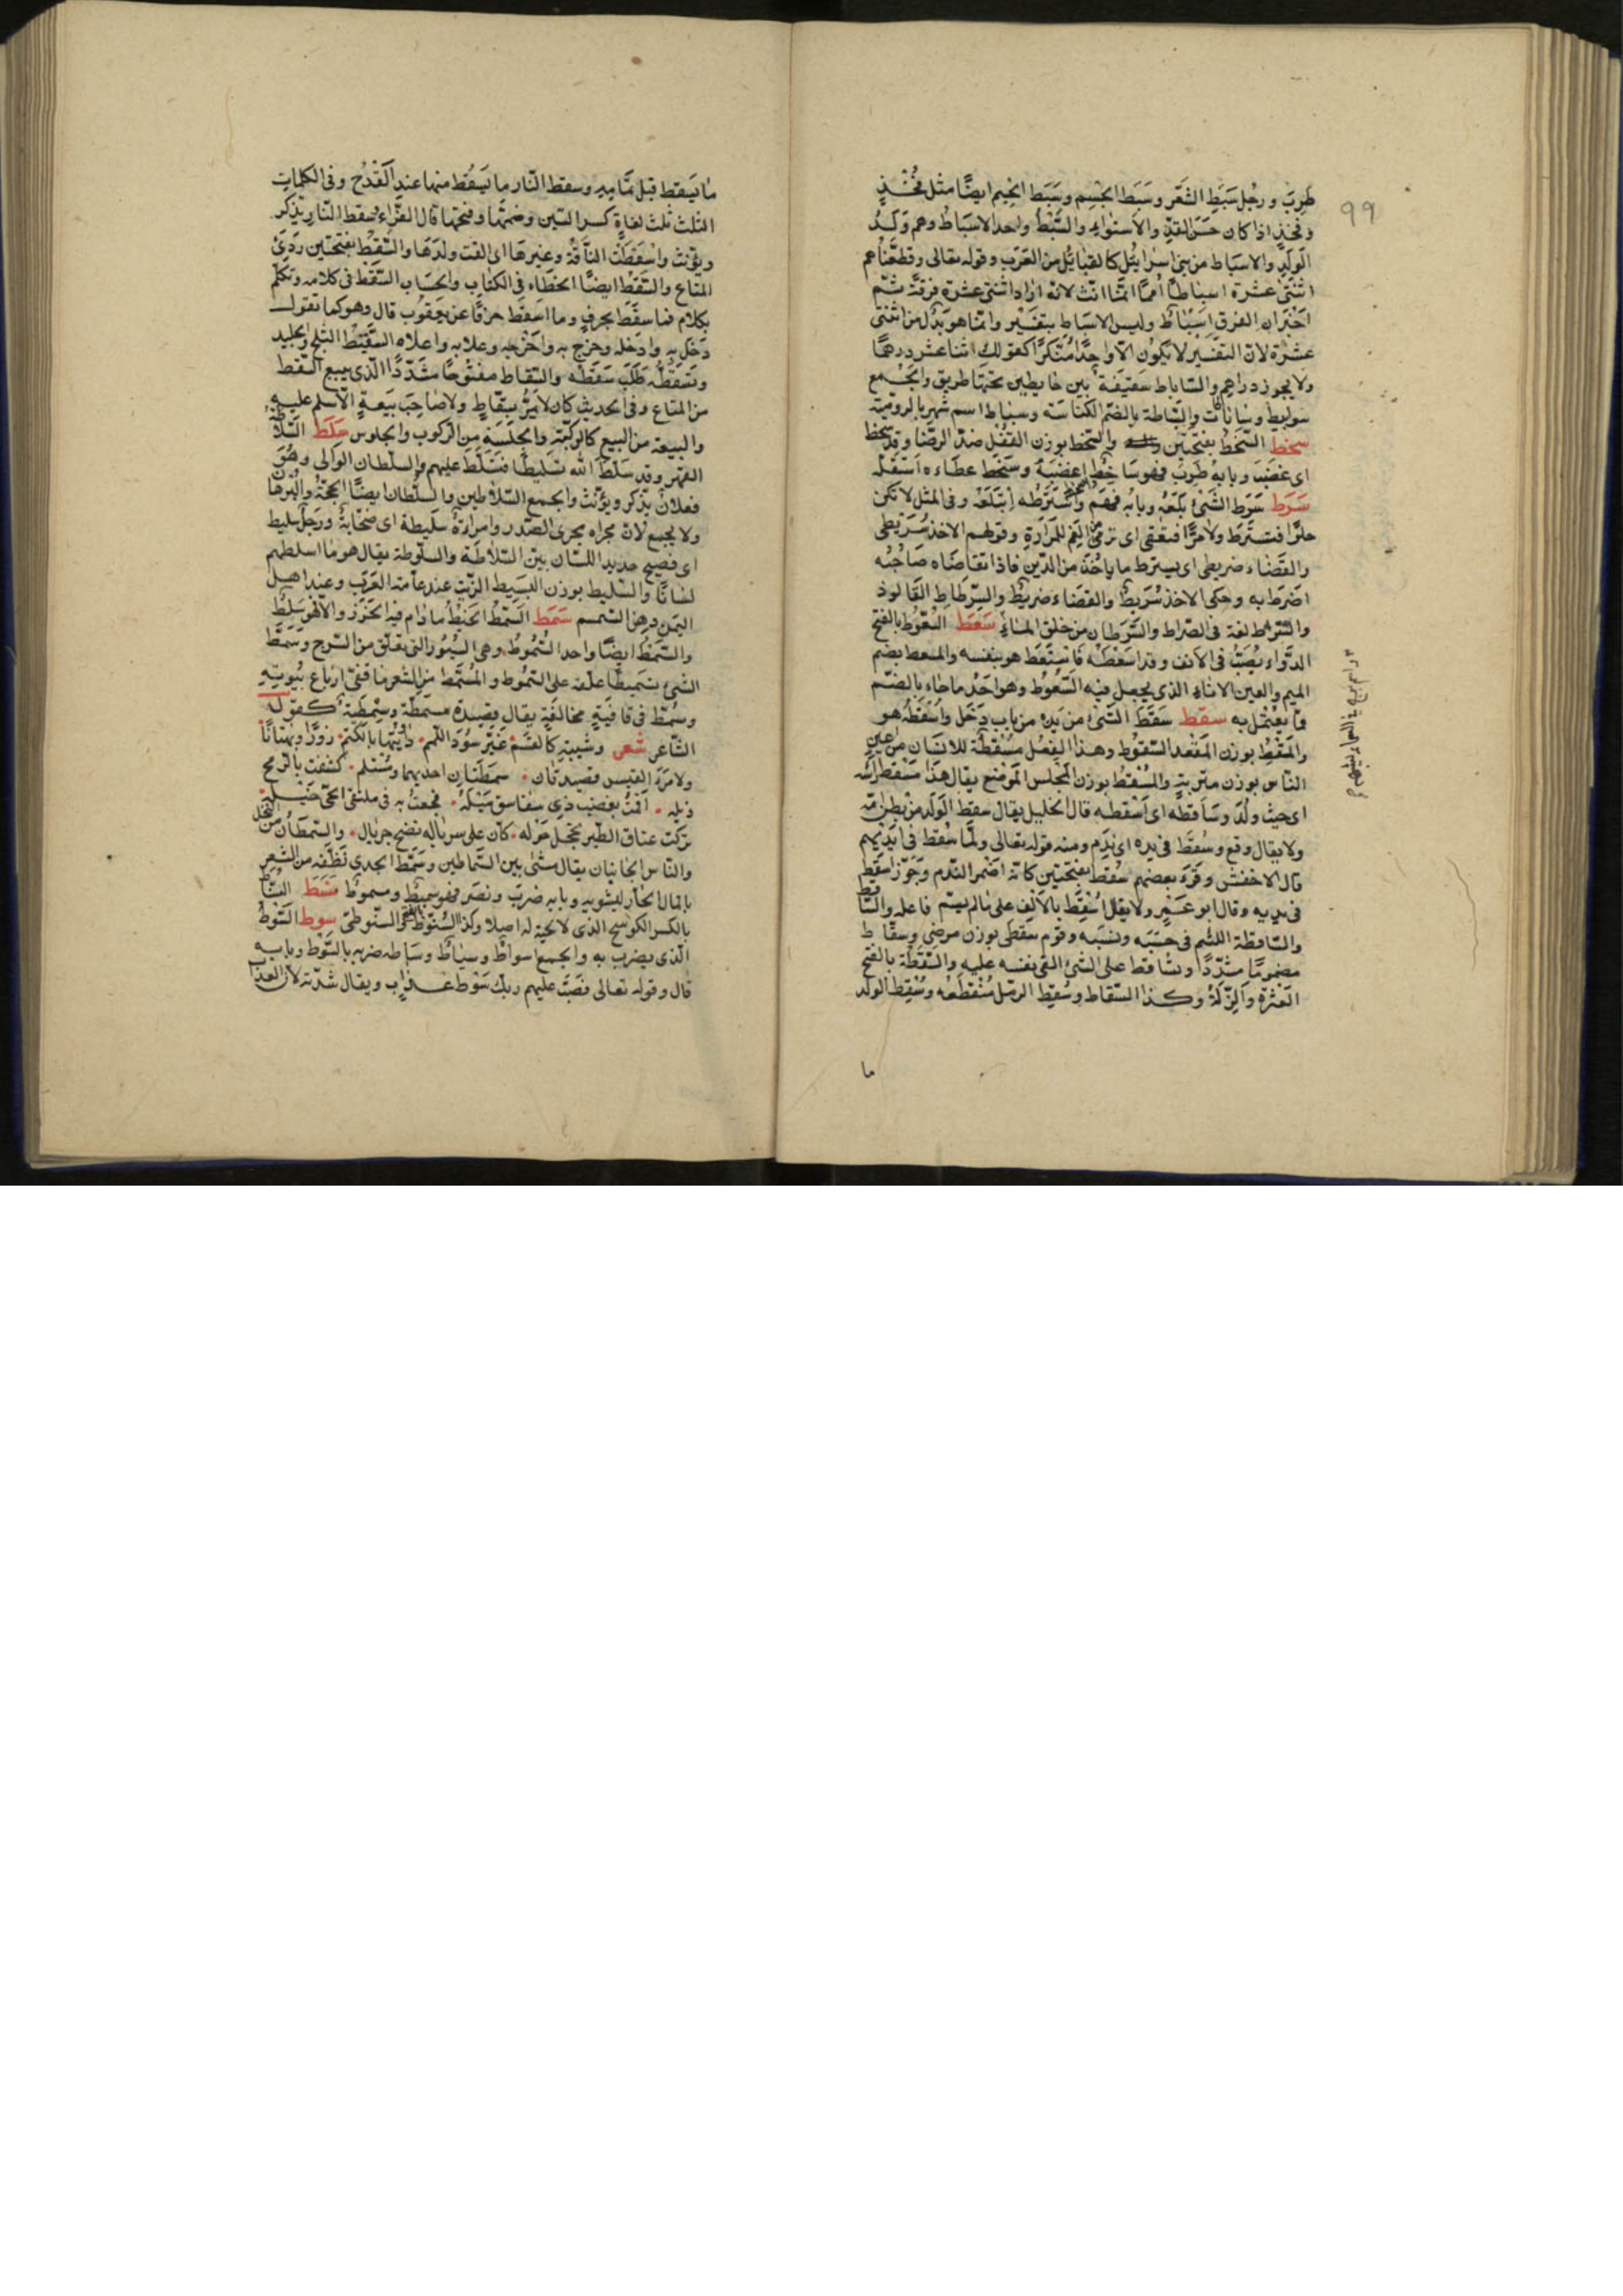 ٩٩
طرب ورجل سبط الشعر وسبط الجسم وسبط الجسم ايضا مثل فخذ
وفخذ اذا كان حسن القد والاستواء والسبط واحد الاسباط وهم ولد
الولد والاسباط من بنى اسرايئل كالقبايل من العرب وقوله تعالى وقطعناهم
اثنتى عشرة اسباطا امما انما انث لانه اراد اثنتى عشرة فرقة ثم
اخبر ان الفرق اسباط وليس الاسباط بتفسير وانما هو بدل من اثنتى
عشرة لان التفسير لا يكون الا واحدا منكرا كقولك اثنا عشر درهما
ولا يجوز دراهم والساباط سقيفة بين حايطين تحتها طريق والجمع
سوابيط وساباطات والسباطة بالضم الكناسة وسباط اسم شهر بالرومية
سخط السخط بفتحتين والسخط بوزن القفل ضد الرضا وقد سخط
اى غضب وبابه طرب فهو ساخط اسخطه اغضبه وسخط عطاءه استقله
سرط سرط الشئ بلعه وبابه فهم واسترطه ابتلعه وفى المثل لا تكن
حلوا فتسترط ولا مرا فتعقى اى ترمى من الفم للمرارة وقولهم الاخذ سريطى
والقضاء ضريطى اى يسترط ما ياخذ من الدين فاذا تقاضاه صاحبه
اضرط به وحكى الاخذ سريط والقضاء ضريط والسرطراط الفالوذ
والسراط لغة فى الصراط والسرطان من خلق الماء سعط السعوط بالفتح
الدواء يصب فى الانف وقد اسعطه فاستعط هو بنفسه والمسعط بضم
الميم والعين الاناء الذى يجعل فيه السعوط وهو احد ما جاء بالضم
مما يعتمل به سقط سقط الشئ من يده من باب دخل واسقطه هو
والمسقط بوزن المقعد السقوط وهذا الفعل مسقطة للانسان من اعين
الناس بوزن متربة والمسقط بوزن المجلس الموضع يقال هذا مسقط راسه
اى حيث ولد وساقطه اى اسقطه قال الخليل يقال سقط الولد من بطن امه
ولا يقال وقع وسقط فى يده اى ندم ومنه قوله تعالى ولما سقط فى ايديهم
قال الاخفش وقرء بعضهم سقط بفتحتين كانه اضمر الندم وجوز اسقط
فى يديه وقال ابو عمرو ولا يقال اسقط بالالف على ما لم يسم فاعله والساقط
والساقطة اللئيم فى حسبه ونسبه وقوم سقطى بوزن مرضى وسقاط
مضموما مشددا وتساقط على الشئ القى نفسه عليه والسقطة بالفتح
العثرة والزلة وكذا السقاط وسقط الرمل منقطعه وسقط الولد
ما
ما يسقط قبل تمامه وسقط النار ما يسقط منها عند القدح وفى الكلمات
الثلث ثلث لغات كسر السين وضمها وفتحها قال الفراء سقط النار يذكر
ويؤنث واسقطت الناقة وغيرها اى القت ولدها والسقط بفتحتين ردئ
المتاع والسقط ايضا الخطاء فى الكتاب والحساب السقط فى كلامه وتكلم
بكلام فما سقط بحرف وما اسقط حرفا عن يعقوب قال وهو كما تقول
دخل به وادخله وخرج به واخرجه وعلا به واعلاه السقيط الثلج والجليد
وتسقطه طلب سقطه والسقاط مفتوحا مشددا الذى يبيع السقط
من المتاع وفى الحديث كان لا يمر بسقاط ولا صاحب بيعة الا سلم عليه
والبيعة من البيع كالركبة والجلسة من الركوب والجلوس سلط السلاطة
القهر وقد سلط الله تسليطا فتسلط عليهم والسلطان الوالى وهو
فعلان يذكر ويؤنث والجمع السلاطين والسلطان ايضا الحجة والبرهان
ولا يجمع لان مجراه مجرى المصدر وامراة سليطة اى صخابة ورجل سليط
اى فصيح حديد اللسان بين السلاطة والسلوطة يقال هو ما اسلطهم
لسانا والسليط بوزن البسيط الزيت عند عامة العرب وعند اهل
اليمن دهن السمسم سمط السمط الخيط ما دام فيه الخرز والا فهو سلط
والسمط ايضا واحد السموط وهى السيور التى تعلق من السرج وسمط
الشئ تسميطا علقه على السموط والمسمط من الشعر ما قفى ارباع بيوته
وسمط فى قافية مخالفة يقال قصيدة مسمطة وسمطية كقوله
الشاعر شعر وشيبة كالقسم غير سود اللمم داويتها بالكتم زورا وبهتانا
ولامرء القيس قصيدتان سمطتان احديهما ومستلئم كشفت بالرمح
ذيله اقمت بعضب ذى سفاسق ميله فجعت به فى ملتقى الحى خيله
تركت عتاق الطير تحجل حوله كان على سرباله نضح جريال والسماطان من النخل
والناس الجانبان يقال مشى بين السماطين وسمط الجدى نظفه من الشعر
بالماء الحار ليشويه وبابه ضرب ونصر فهو سميط ومسموط سنط السناط
بالكسر الكوسج الذى لا لحية له اصلا وكذا السنوط بالفتح والسنوطى سوط السوط
الذى يضرب به والجمع اسواط وسياط وساطه ضربه بالسوط وبابه
قال وقوله تعالى فصب عليهم ربك سوط عذاب ويقال شدته لان العذاب